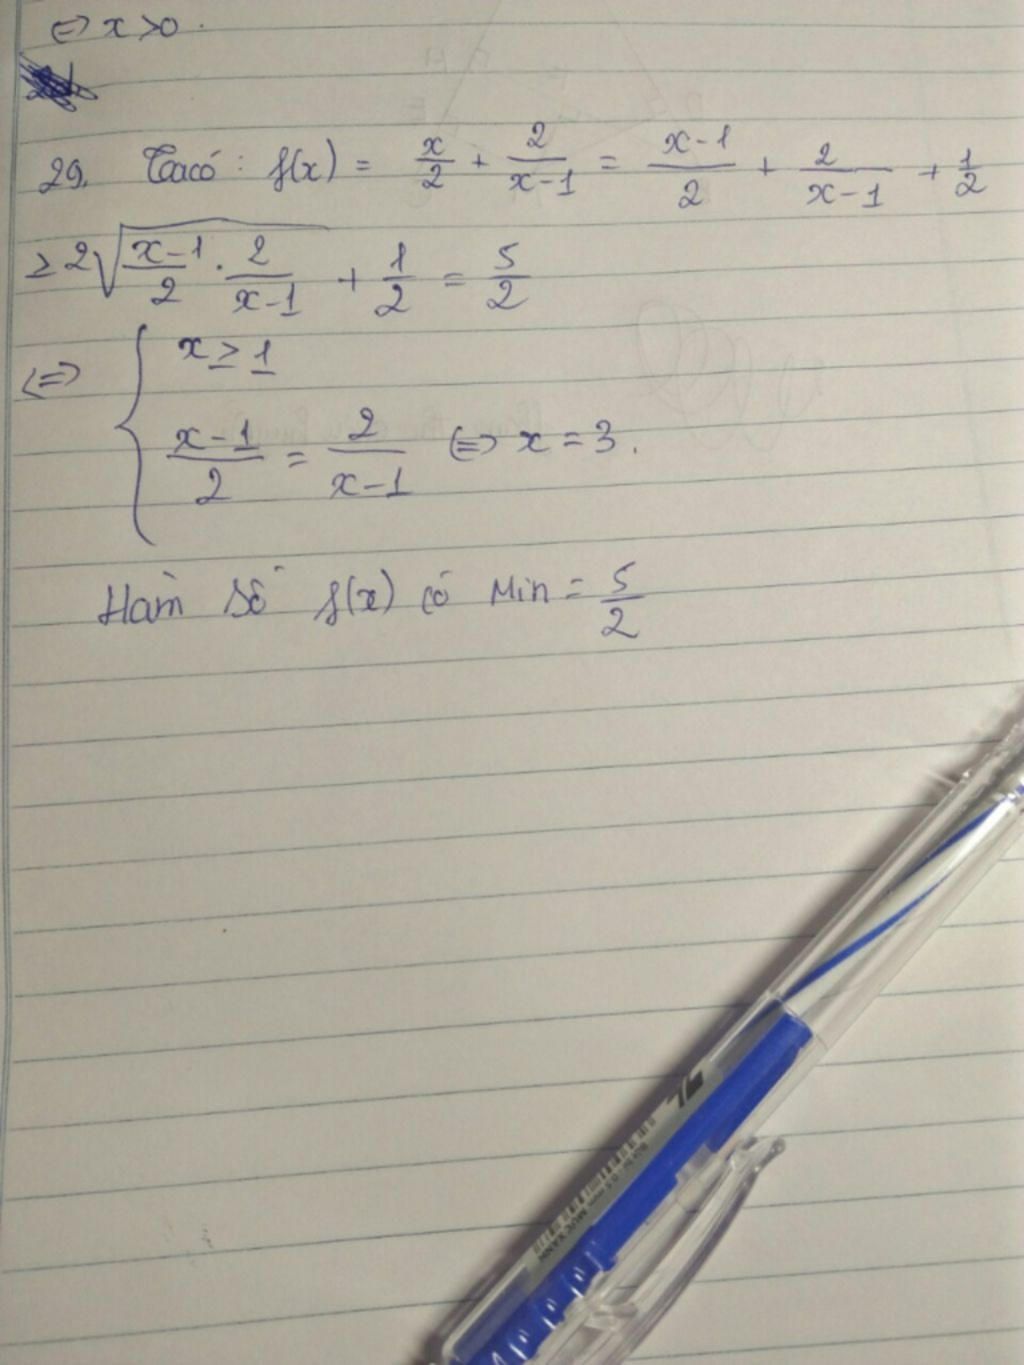 ⇔ x > 0.
29. Ta có: f(x) = x/2 + 2/(x-1) = (x-1)/2 + 2/(x-1) + 1/2
≥ 2√((x-1)/2 · 2/(x-1)) + 1/2 = 5/2
⇔ { x ≥ 1
(x-1)/2 = 2/(x-1) ⇔ x = 3.
Hàm số f(x) có Min = 5/2